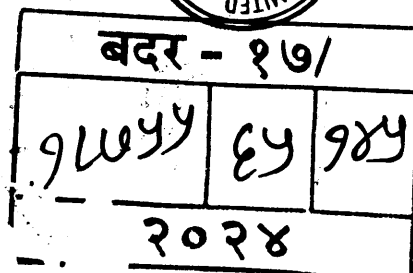 बदर - १७/
१८७५५ ६५ १४५
२०२४